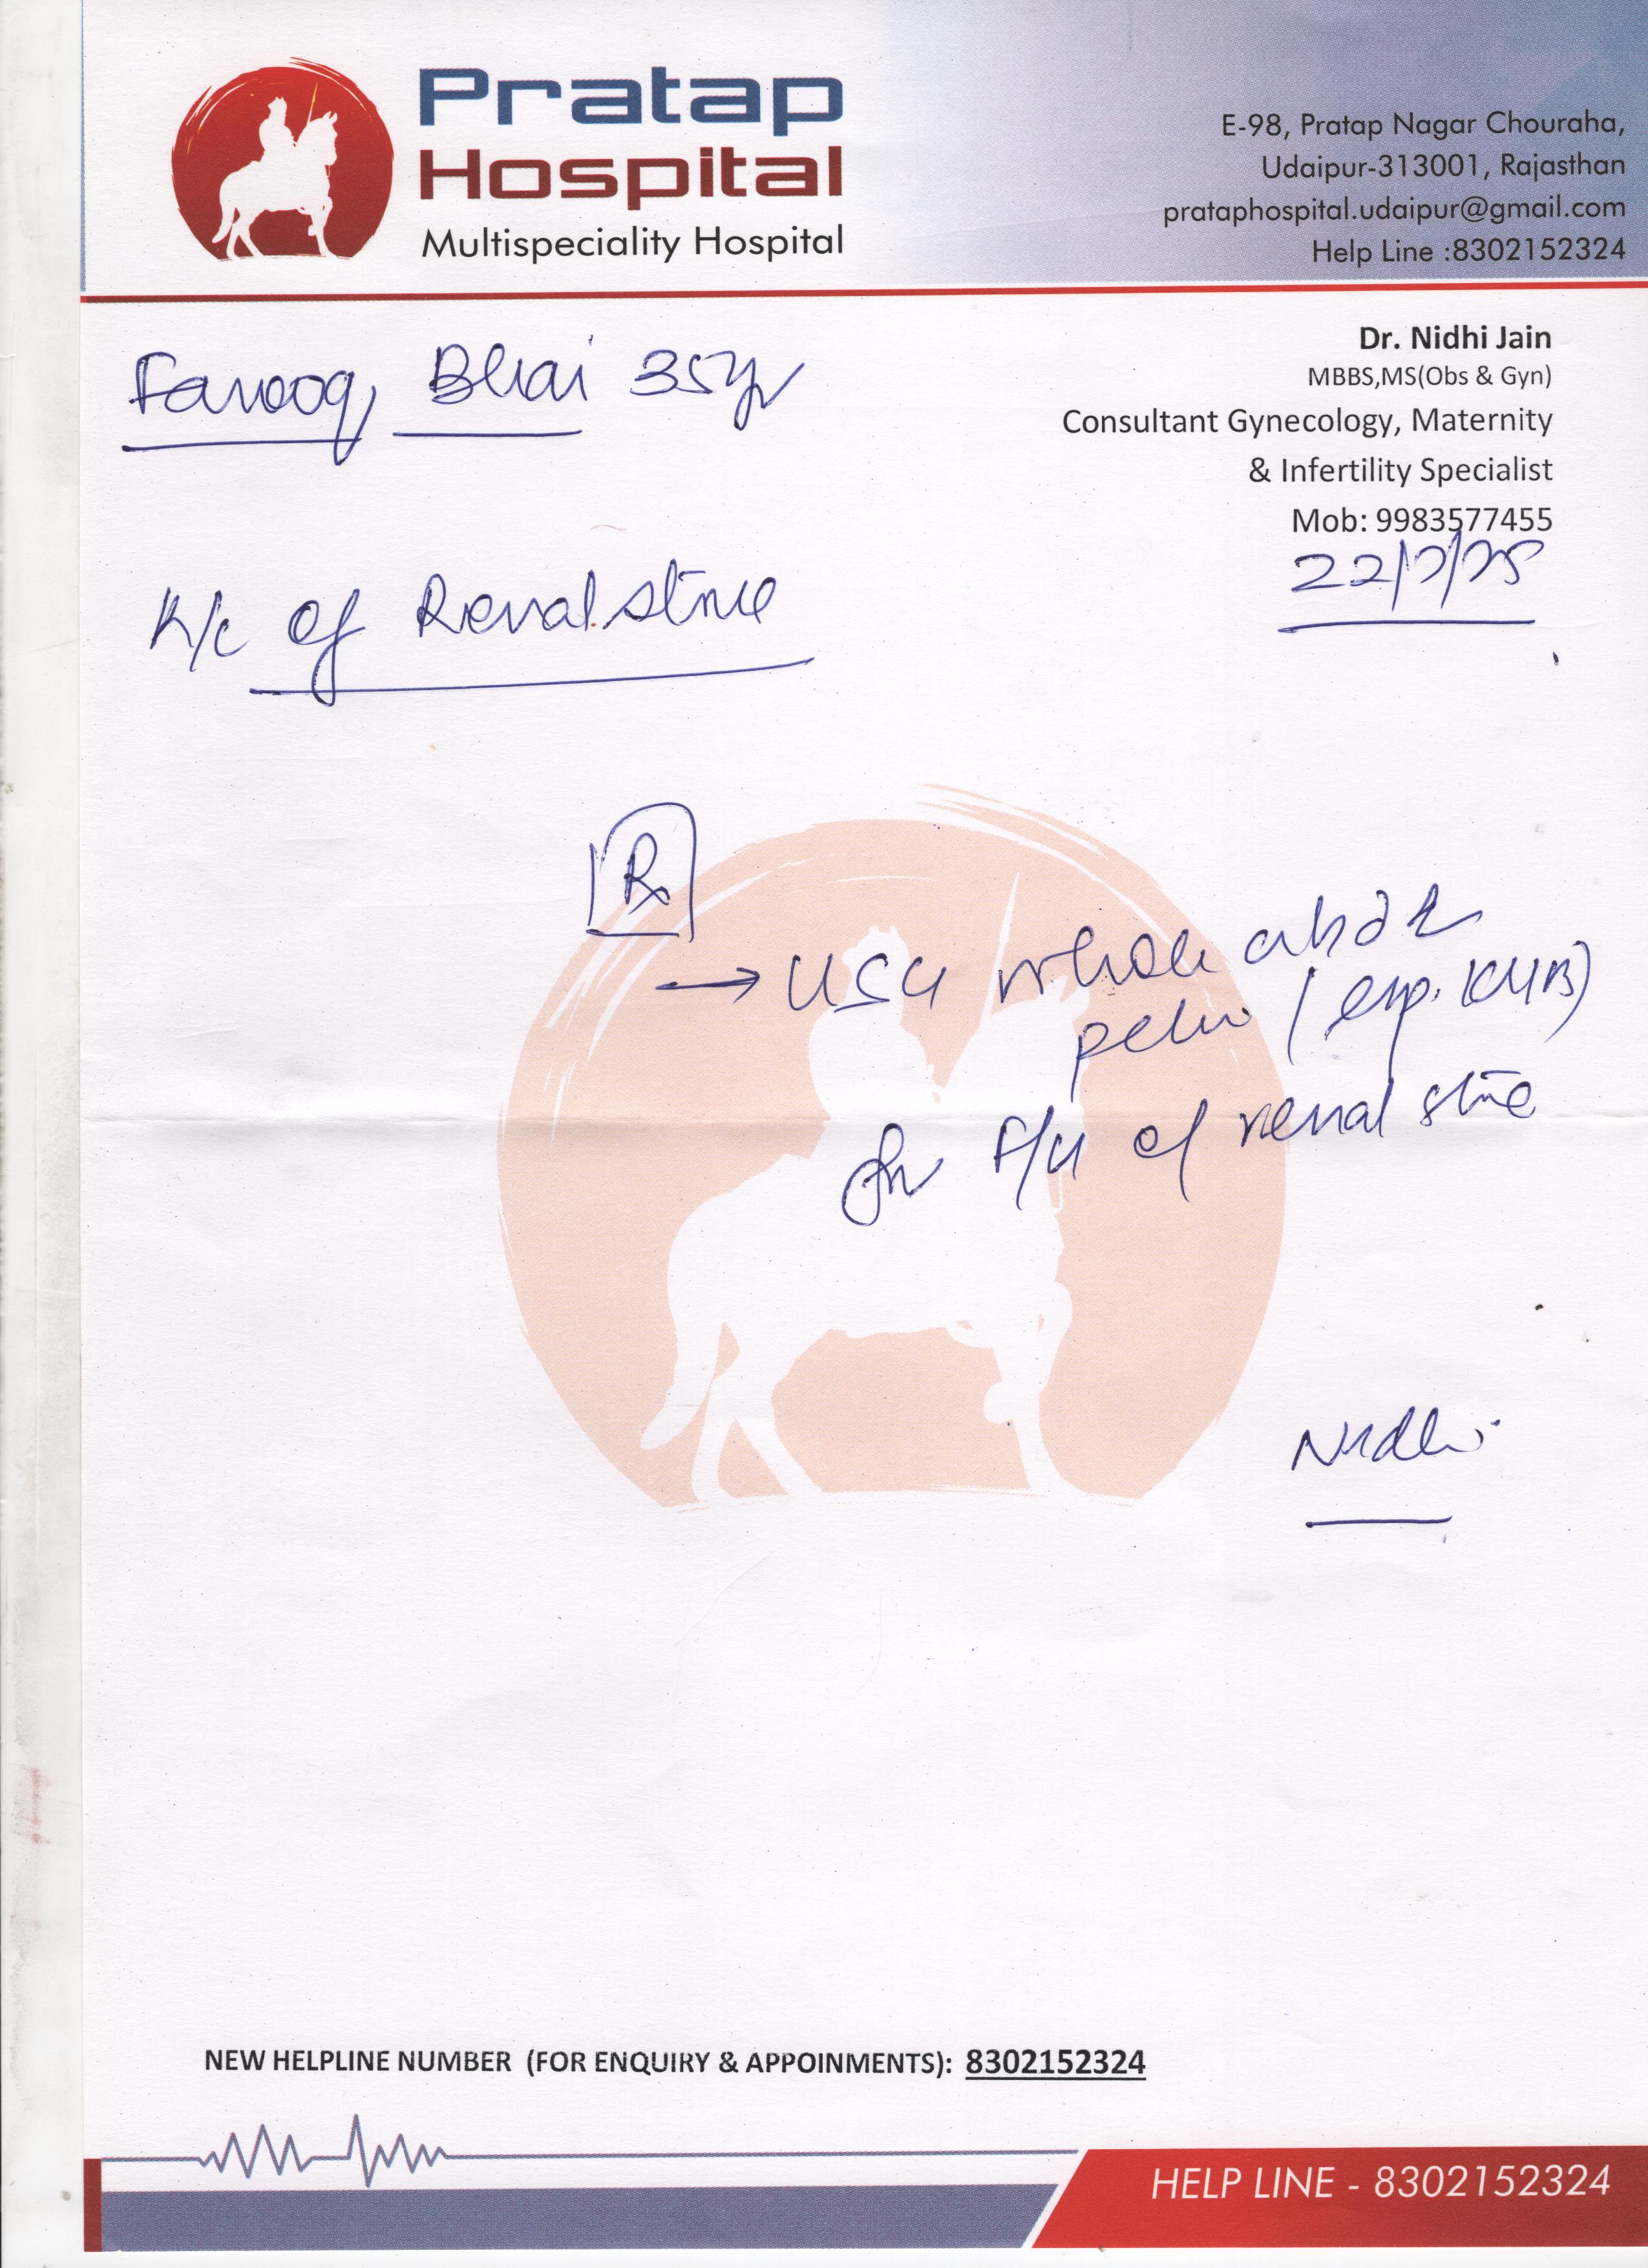 Pratap
Hospital
Multispeciality Hospital
E-98, Pratap Nagar Chouraha,
Udaipur-313001, Rajasthan
prataphospital.udaipur@gmail.com
Help Line :8302152324
Dr. Nidhi Jain
MBBS,MS(Obs & Gyn)
Consultant Gynecology, Maternity
& Infertility Specialist
Mob: 9983577455
Farooq Bhai 35yr
22/7/25
K/c of Renal stone
Rx
→ USG whole abd &
pelvis (esp. KUB)
for F/u of renal stone
Nidhi
NEW HELPLINE NUMBER (FOR ENQUIRY & APPOINMENTS): 8302152324
HELP LINE - 8302152324